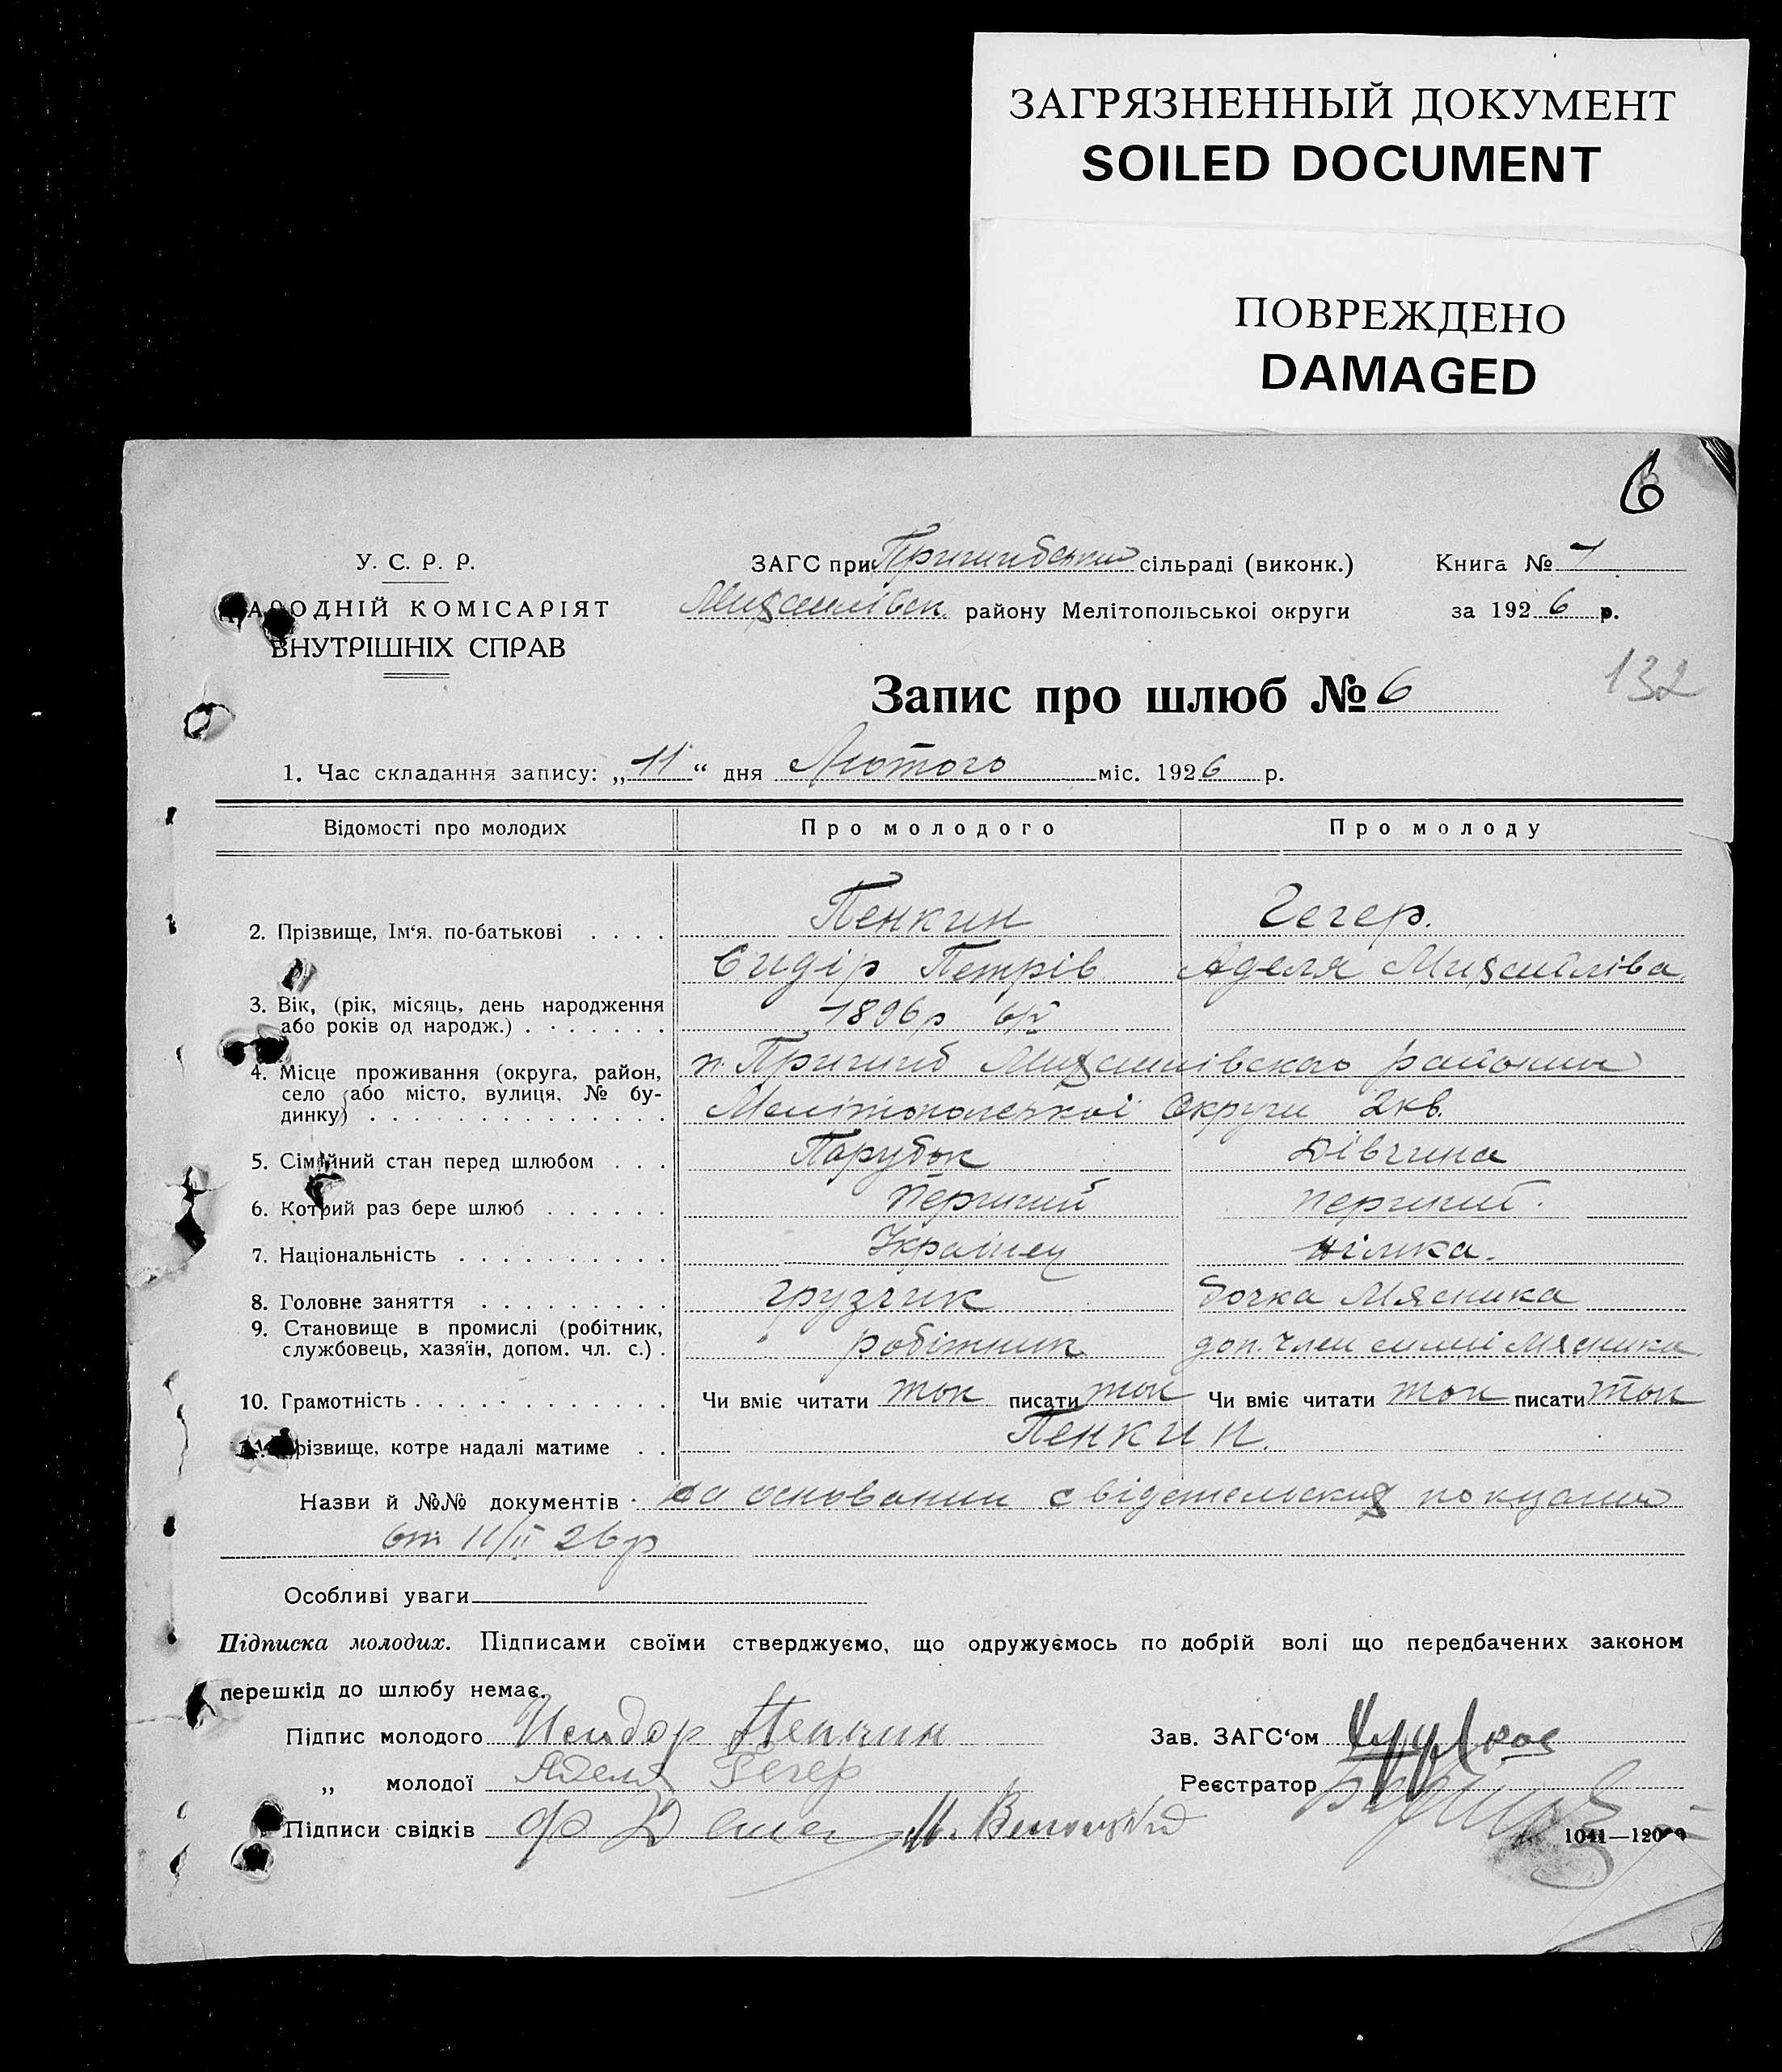 ЗАГРЯЗНЕННЫЙ ДОКУМЕНТ
SOILED DOCUMENT
ПОВРЕЖДЕНО
DAMAGED
6
У. С. Р. Р.
НАРОДНІЙ КОМІСАРІЯТ
ВНУТРІШНІХ СПРАВ
ЗАГС при Пришибський сільраді (виконк.)
Михайлівск. району Мелітопольської округи
Книга № 1
за 1926 р.
132
Запис про шлюб № 6
1. Час складання запису: „11“ дня Лютого міс. 1926 р.
Відомості про молодих Про молодого Про молоду
2. Прізвище, Ім‘я. по-батькові . . . . Пенкин Гегер.
Сидір Петрів Аделя Михайліва
3. Вік, (рік, місяць, день народження
або років од народж.) . . . . . . . 1896 р
4. Місце проживання (округа, район, п. Пришиб Михайлівского района
село або місто, вулиця, № бу- Мелітопольскої Округи 2кв.
динку) . . . . . . . . . . . . . .
5. Сімейний стан перед шлюбом . . . Парубок Дівчина
6. Котрий раз бере шлюб . . . . . . Перший перший.
7. Національність . . . . . . . . . . Українец німка.
8. Головне заняття . . . . . . . . . грузчик Дочка Мясника
9. Становище в промислі (робітник,
службовець, хазяїн, допом. чл. с.) . робітник доп. член симї Мясника.
10. Грамотність . . . . . . . . . . . . Чи вміє читати так писати так Чи вміє читати так писати так
11. Прізвище, котре надалі матиме . . Пенкин.
Назви й №№ документів на основании свідетельских показаний
от 11/II 26 р
Особливі уваги
Підписка молодих. Підписами своїми стверджуємо, що одружуємось по добрій волі що передбачених законом
перешкід до шлюбу немає.
Підпис молодого Исидор Пенкин
Зав. ЗАГС‘ом
„ молодої Аделя Гегер
Реєстратор
Підписи свідків
1041—12000